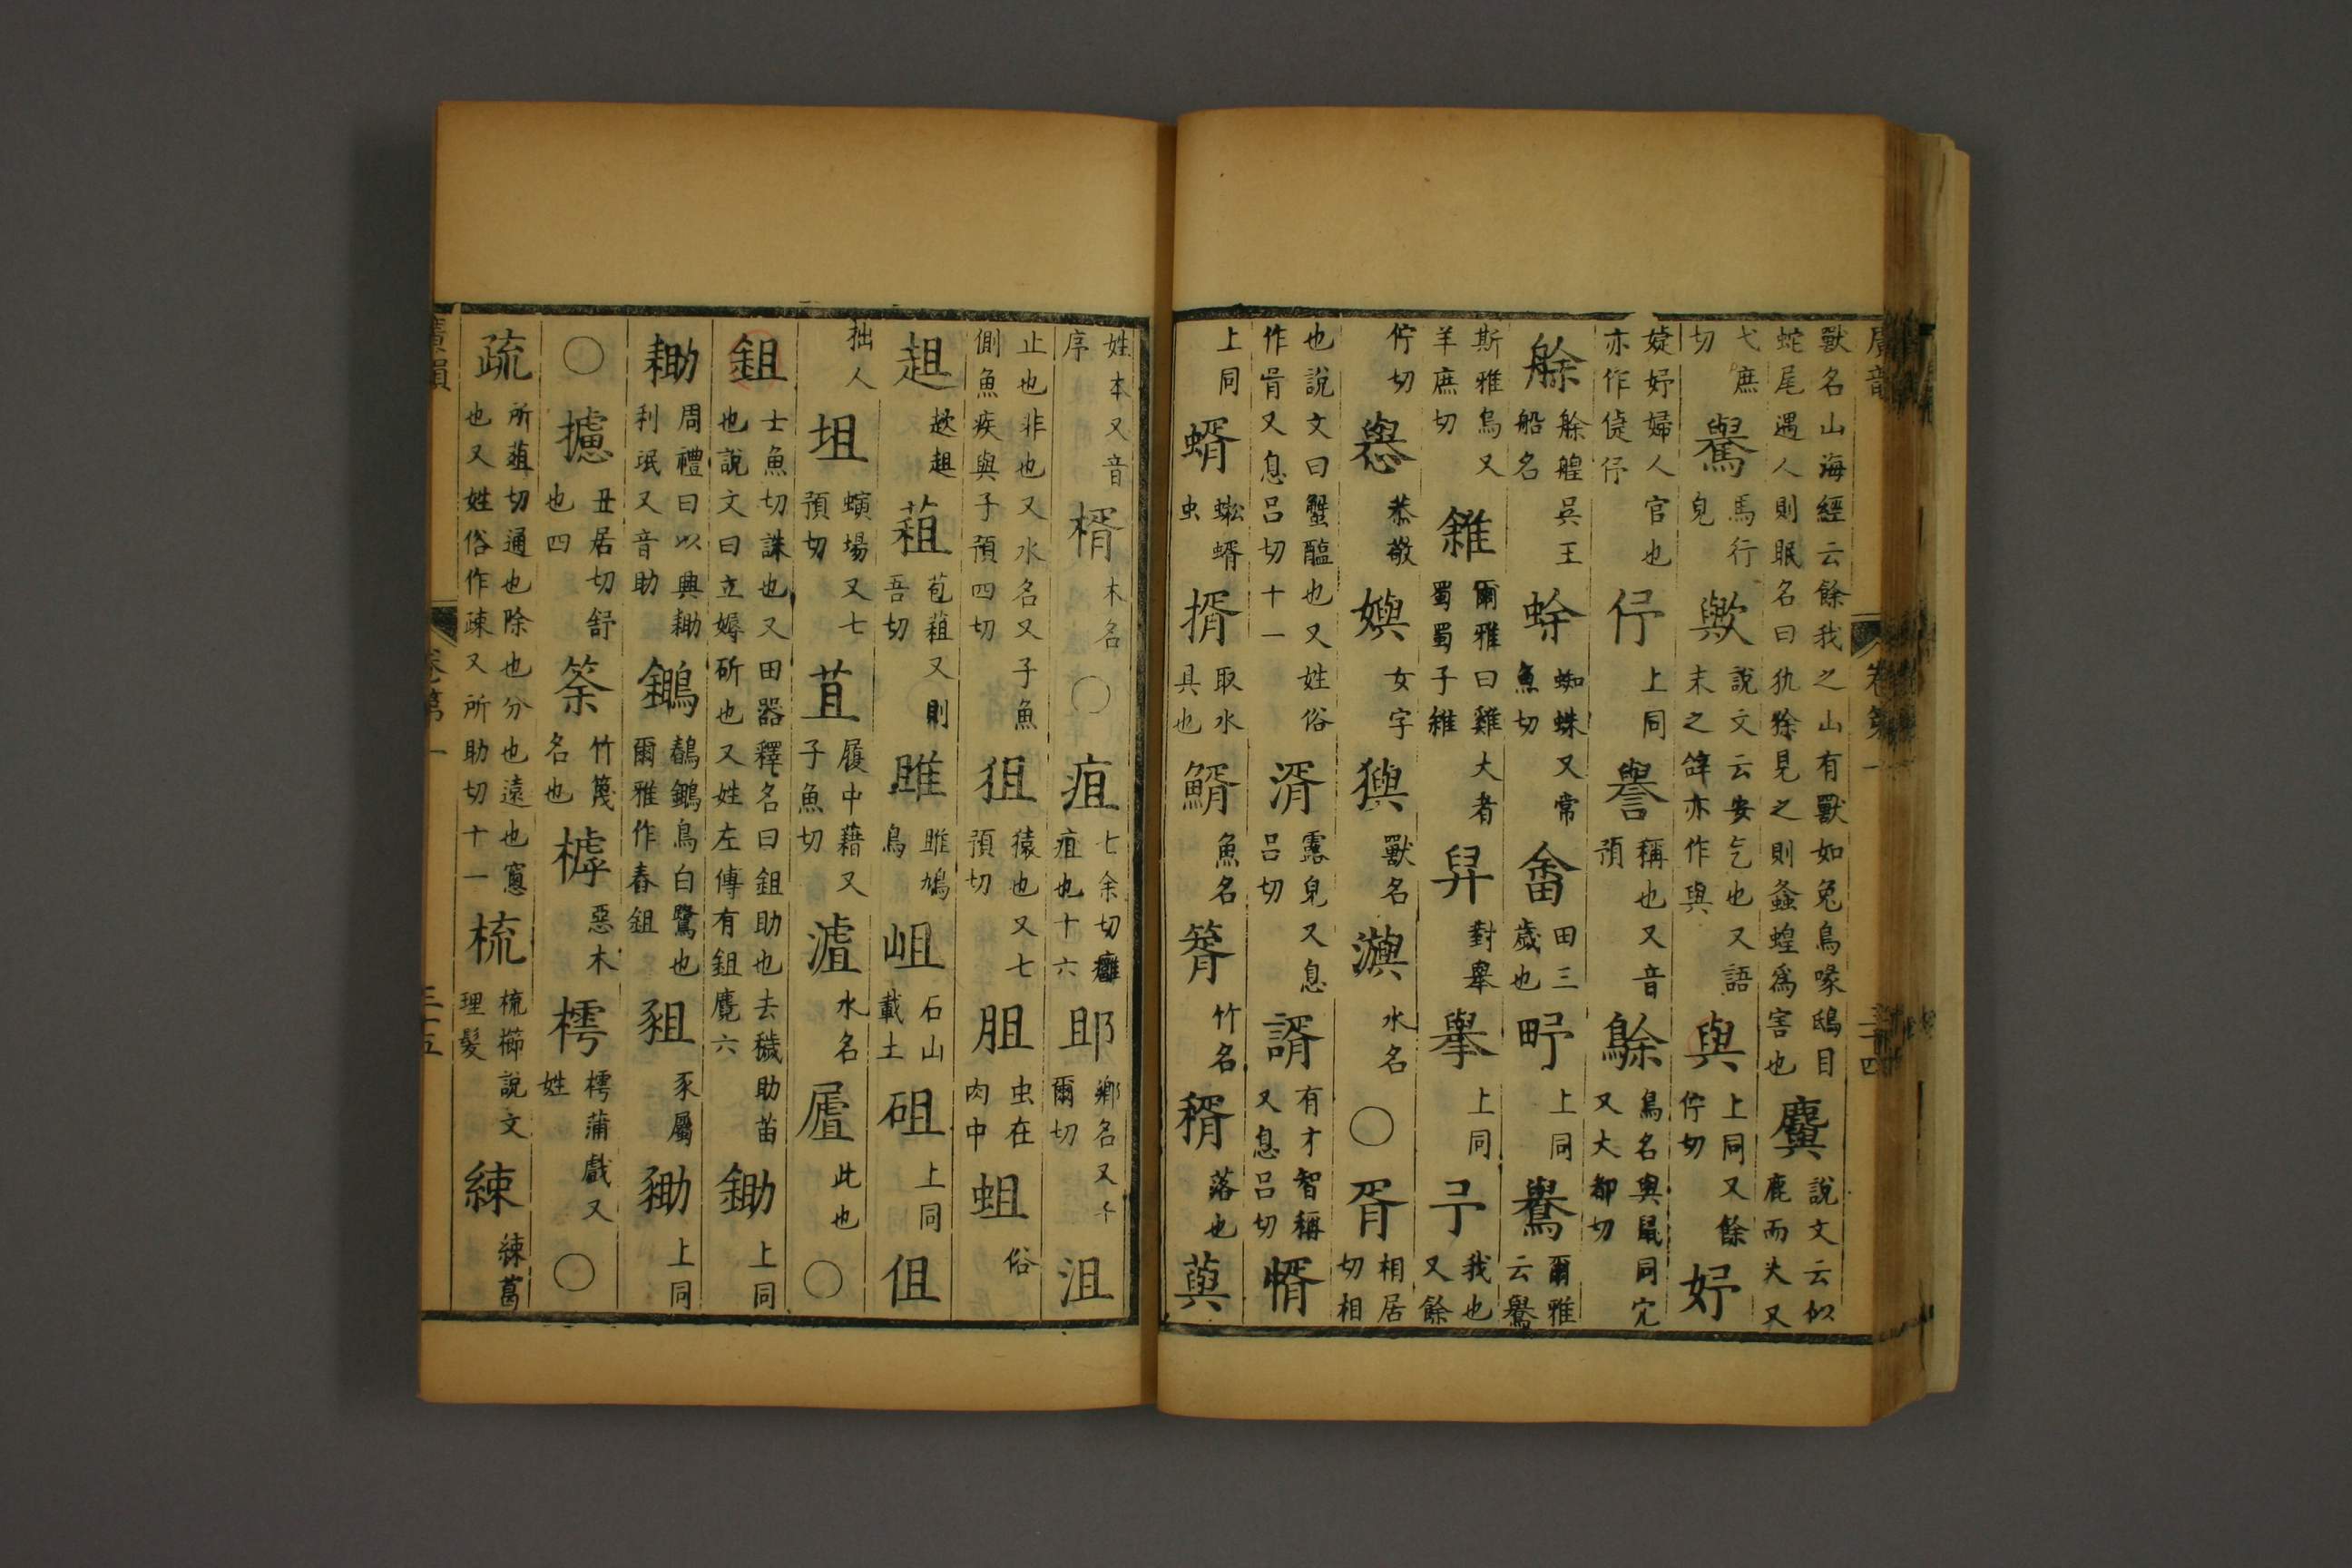 廣韻 卷第一 三十四
獸名山海經云餘我之山有獸如兔鳥喙鴟目蛇尾遇人則眠名曰犰狳見之則螽蝗爲害也 麌 說文云似鹿而大又
弋庶切 鸒 馬行皃 歟 說文云安气也又語末之辝亦作與 與 上同又餘佇切 妤
婕妤婦人官也亦作倢伃 伃 上同 譽 稱也又音預 鵌 鳥名與鼠同穴又大都切
艅 艅艎吳王船名 蜍 蜘蛛又常魚切 畬 田三歲也 㽥 上同 鸒 爾雅云鸒
斯雅烏又羊庶切 雓 爾雅曰雞大者蜀蜀子雓 舁 對舉 擧 上同 予 我也又餘
佇切 懙 恭敬 嬩 女字 㺞 獸名 澦 水名 ○ 胥 相居切相
也說文曰蟹醢也又姓俗作胥又息呂切十一 湑 露皃又息呂切 諝 有才智稱又息呂切 㥠
上同 蝑 蜙蝑虫 揟 取水具也 鰖 魚名 䈝 竹名 稰 落也 蕦
姓本又音序 楈 木名 ○ 疽 七余切癰疽也十六 䣅 鄉名又千爾切 沮
止也非也又水名又子魚側魚疾與子預四切 狙 猿也又七預切 胆 虫在肉中 蛆 俗
趄 趑趄 蒩 苞蒩又則吾切 雎 雎鳩鳥 岨 石山載土 砠 上同 伹
拙人 坥 螾場又七預切 苴 履中藉又子魚切 瀘 水名 䣯 此也 ○
鉏 士魚切誅也又田器釋名曰鉏助也去穢助苗也說文曰立薅斫也又姓左傳有鉏麑六 鋤 上同
耡 周禮曰以興耡利珉又音助 鶵 鸀鶵鳥白鷺也爾雅作舂鉏 豠 豕屬 䝝 上同
○ 攄 丑居切舒也四 筡 竹篾名也 樗 惡木 㯉 樗蒲戲又姓 ○
疏 所葅切通也除也分也遠也窻也又姓俗作疎又所助切十一 梳 梳櫛說文理髮 練 練葛
廣韻 卷第一 三十五